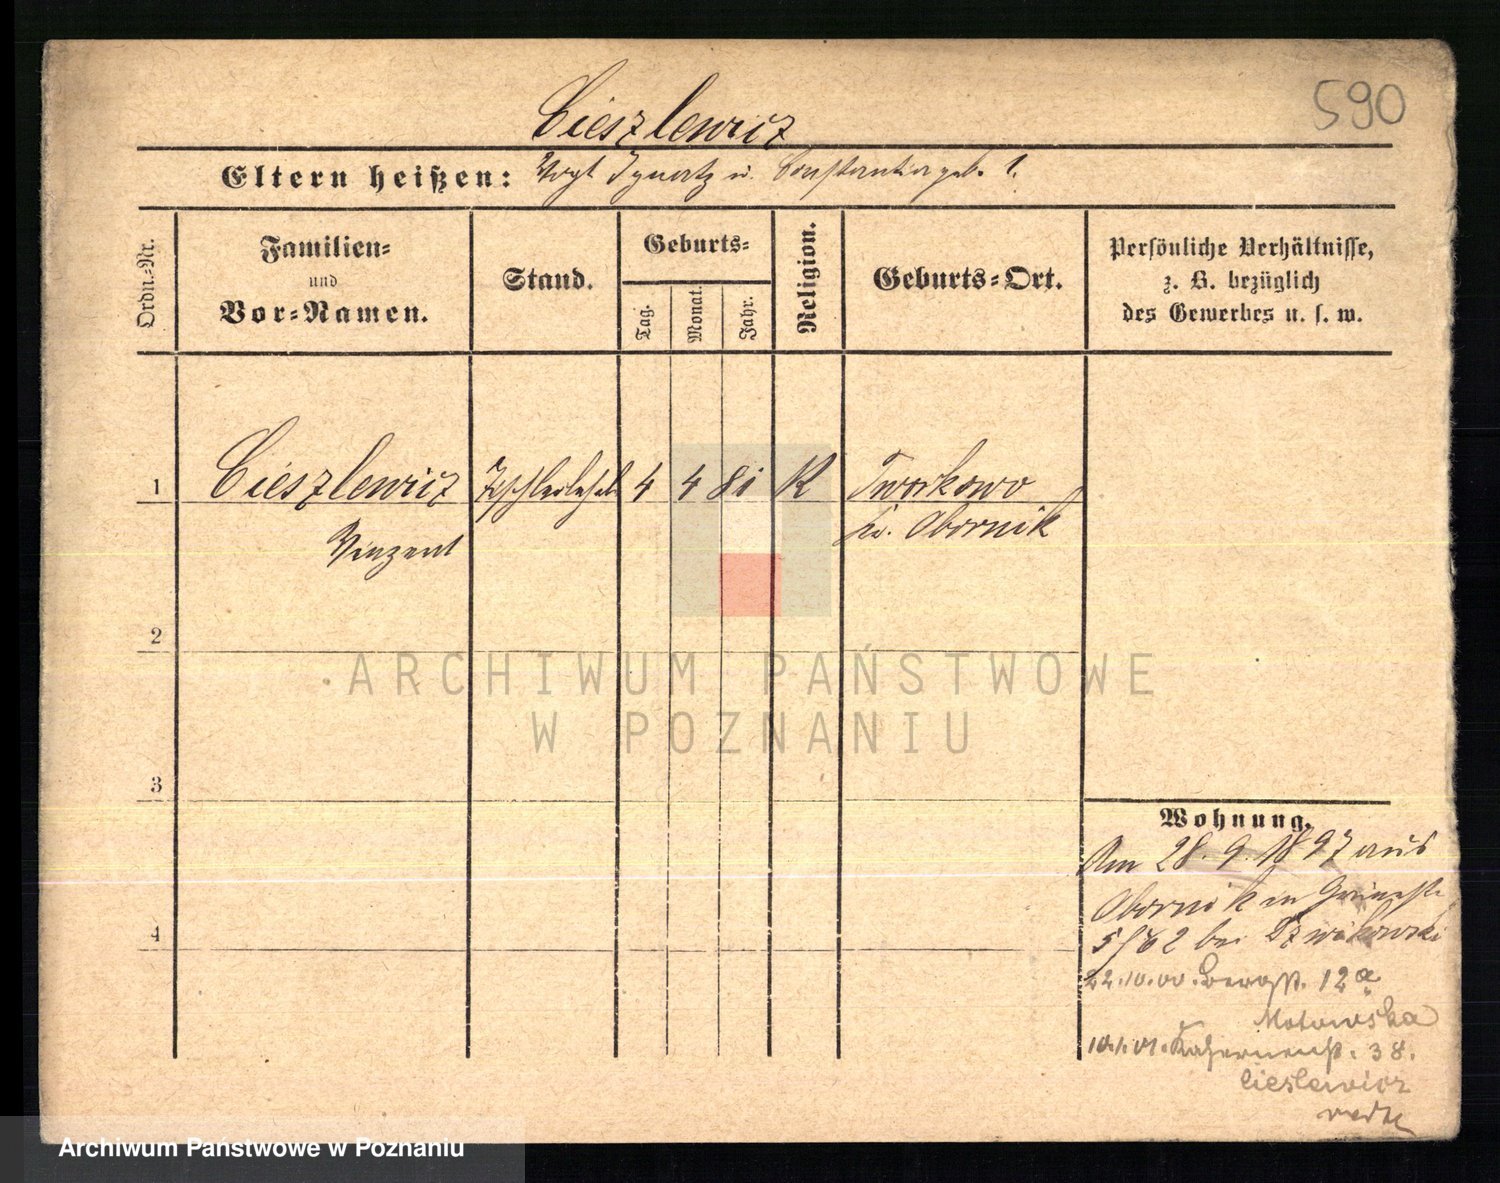 590
Cieszlewicz
Eltern heißen: Vogt Ignatz u. Constantia geb. ?.
Ordn.-Nr.
Familien-
und
Vor-Namen.
Stand.
Geburts-
Tag.
Monat.
Jahr.
Religion.
Geburts-Ort.
Persönliche Verhältnisse,
z. B. bezüglich
des Gewerbes u. s. w.
1 Cieszlewicz Tischlerlehrl 4 4 81 K Tworkowo
Vinzent Kr. Obornik
2
3
4
Wohnung.
Am 28.9.1897 aus
Obornik in
5/62 bei
22.10.00. Bergstr. 12a
Motowska
10.1.01. Kasernenstr. 38.
Cieslewicz
ARCHIWUM PAŃSTWOWE
W POZNANIU
Archiwum Państwowe w Poznaniu